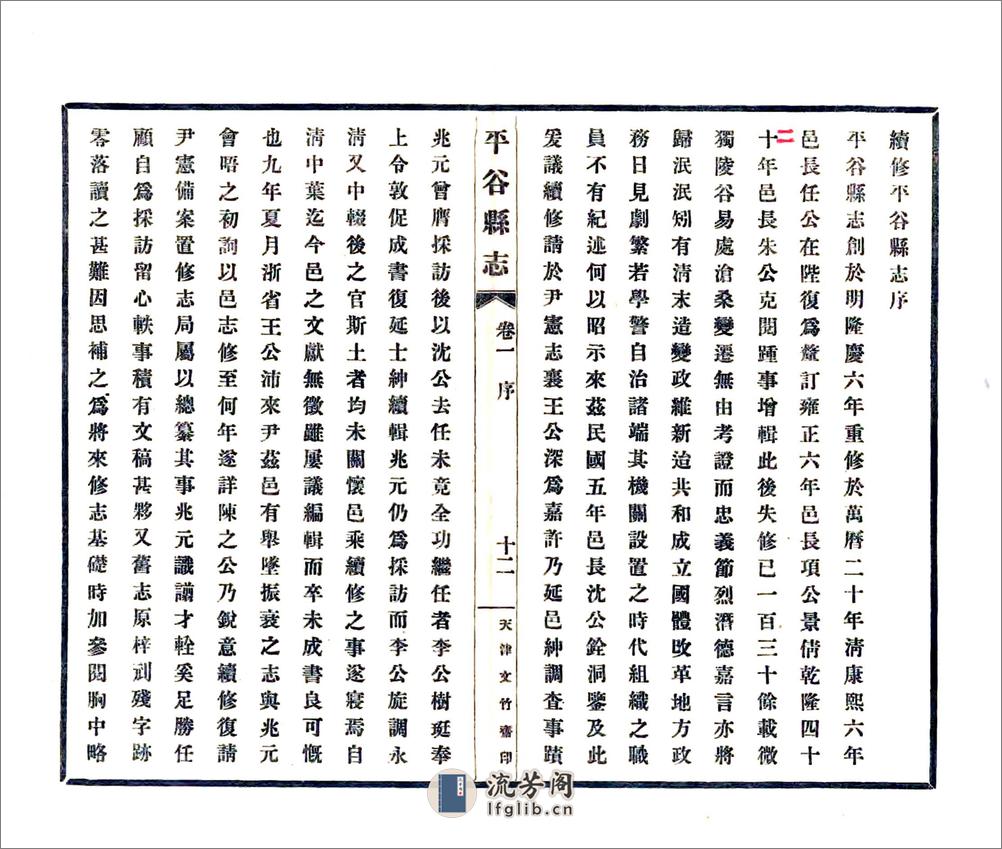 續修平谷縣志序
平谷縣志創於明隆慶六年重修於萬曆二十年淸康熙六年
邑長任公在陛復爲釐訂雍正六年邑長項公景倩乾隆四十
二
十年邑長朱公克閱踵事增輯此後失修已一百三十餘載微
獨陵谷易處滄桑變遷無由考證而忠義節烈濟德嘉言亦將
歸泯泯矧有淸末造變政維新迨共和成立國體改革地方政
務日見劇繁若學警自治諸端其機關設置之時代組織之職
員不有紀述何以昭示來茲民國五年邑長沈公銓洞鑒及此
爰議續修請於尹憲志襄王公深爲嘉許乃延邑紳調查事蹟
平谷縣志
卷一
序
十二
天津文竹齋印
兆元曾膺採訪後以沈公去任未竟全功繼任者李公樹珽奉
上令敦促成書復延士紳續輯兆元仍爲採訪而李公旋調永
淸又中輟後之官斯土者均未關懷邑乘續修之事遂寢焉自
淸中葉迄今邑之文獻無徵雖屢議編輯而卒未成書良可慨
也九年夏月浙省王公沛來尹茲邑有舉墜振衰之志與兆元
會唔之初詢以邑志修至何年遂詳陳之公乃銳意續修復請
尹憲備案置修志局屬以總纂其事兆元識譾才輇奚足勝任
顧自爲採訪留心軼事積有文稿甚夥又舊志原梓刓殘字跡
零落讀之甚難因思補之爲將來修志基礎時加參閱胸中略
流芳阁
lfglib.cn